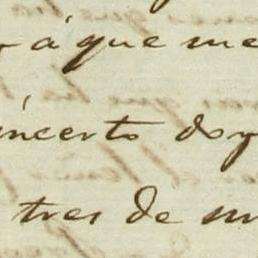 á que me
incerto doy
tres de